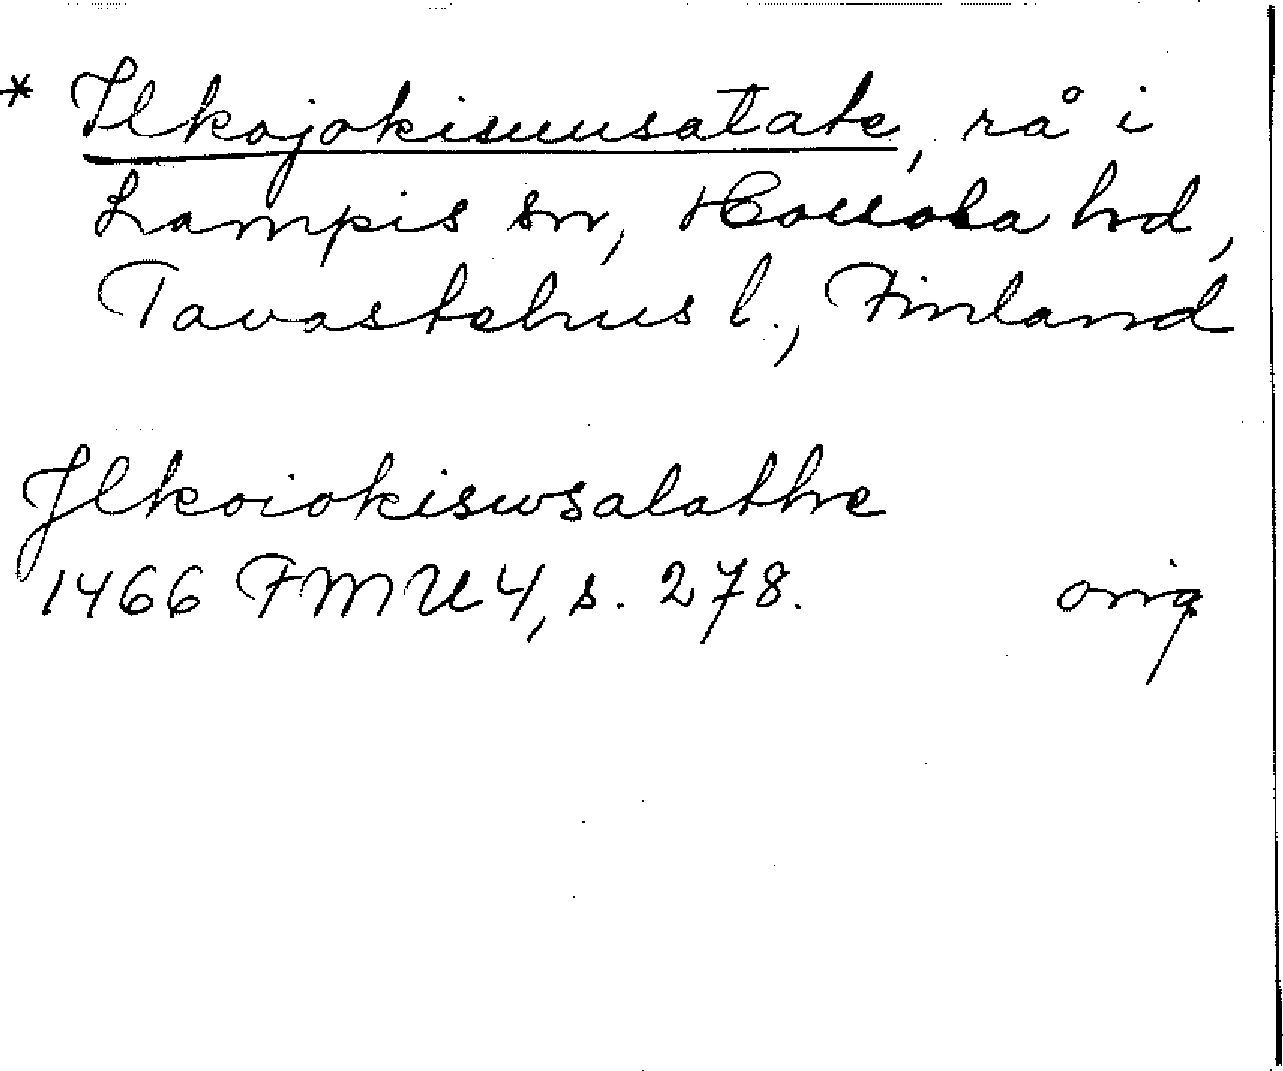 * Ilkojokisuusalate, rå i
Lampis sn, Hollola hd,
Tavastehus l., Finland
Jlkoiokiswsalathe
1466 FMU 4, s. 278. orig